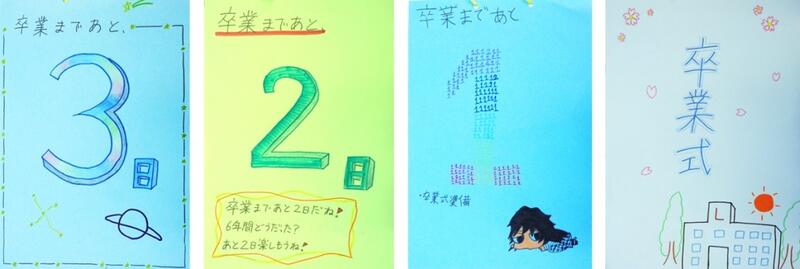 卒業まであと、
3日
卒業まであと、
2日
卒業まであと2日だね!
6年間どうだった?
あと2日楽しもうね!
卒業まであと
1
・卒業式準備
卒業式